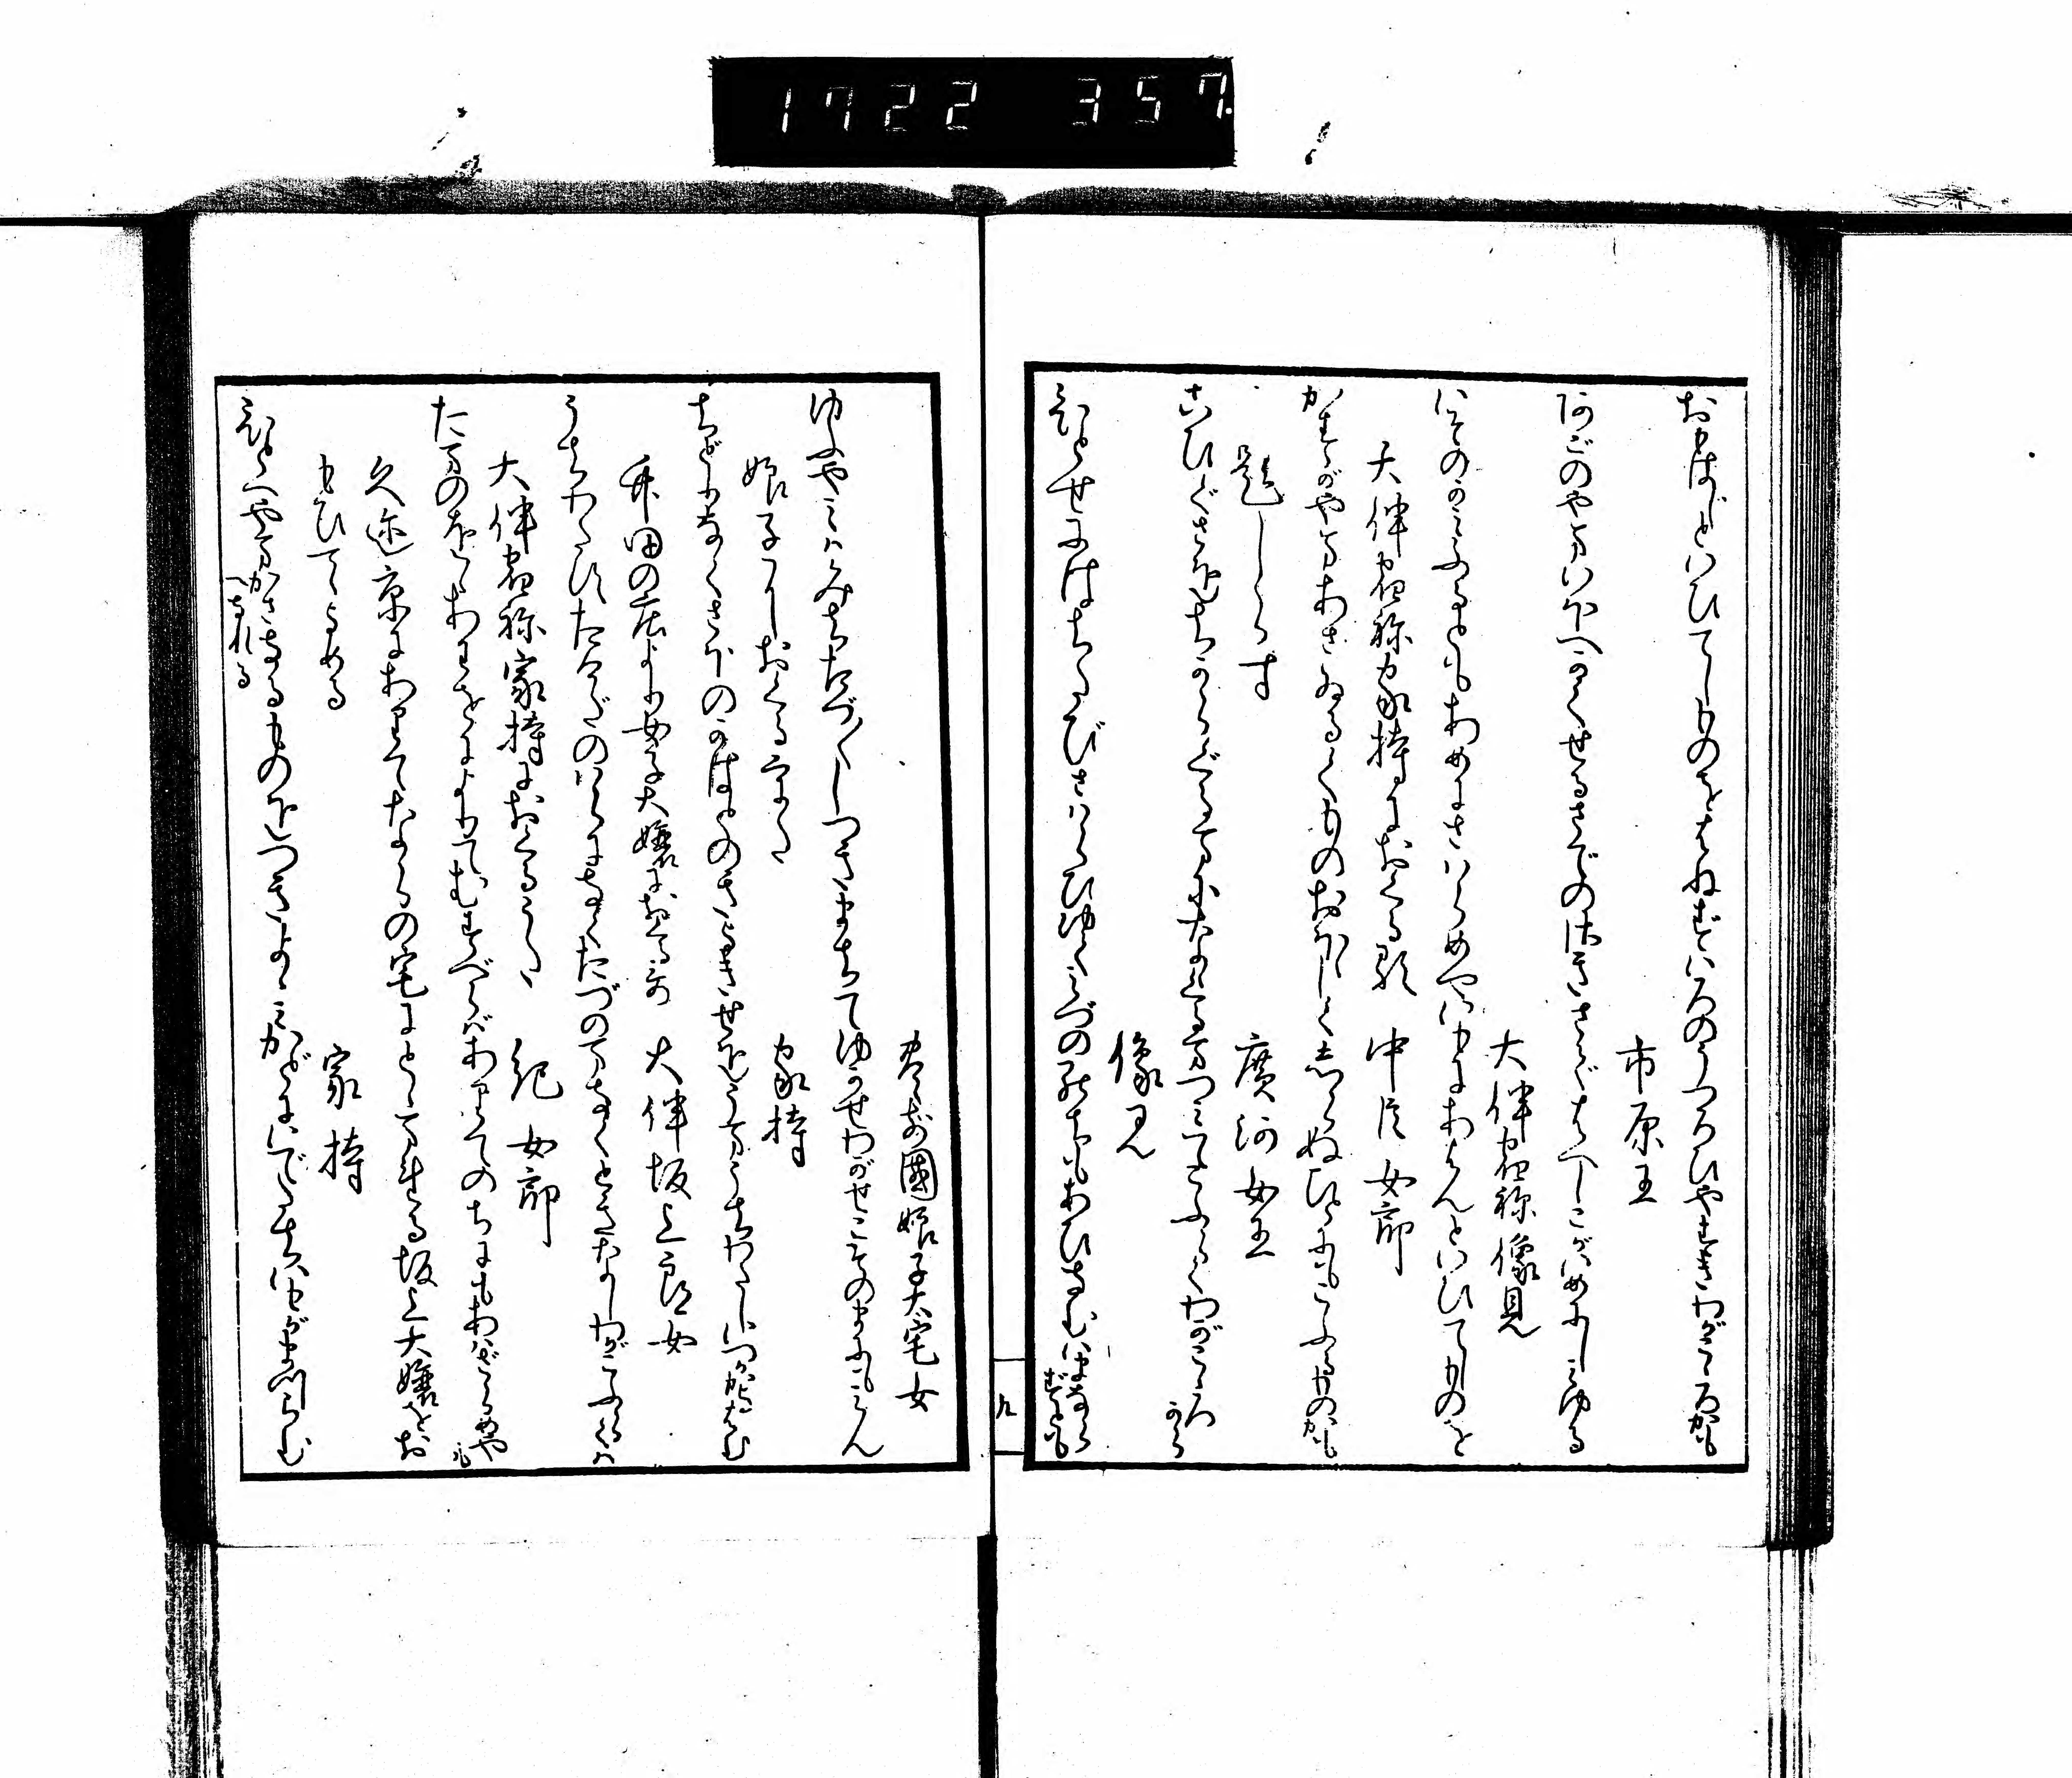 おもはじといひてしものをはねずいろのうつろひやすきわがこゝろかも
市原王
阿ごのやまいほへかくせるさでのさきさでばへしこがいめにしみゆる
大伴宿祢像見
いそのかみふるともあめにさはらめやいもにあはんといひてしものを
大伴宿祢家持におくる歌　中臣女郎
かすがやまあさゐるくものおほほしくしらぬひとにもこふるものかも
題しらす　廣河女王
こひぐさをちからぐるまになゝくるまつみてこふらくわがこゝろから
像見
ひとせにはちたびさはらひゆくみづののちもあひなむいまならずとも
九
豊前國娘子大宅女
ゆふやみはみちたづ〳〵しつきまちてゆかせわがせこそのまにもみん
娘子かりおくるうた　家持
ちどりなくさほのかはとのきよきせをうまうちわたしいつかかよはむ
竹田の庄より女子大嬢におくる哥　大伴坂上郎女
うちわたすたけだのはらになくたづのまなくときなしわがこふらくは
大伴宿祢家持におくるうた　紀女郎
たまのををあわをによりてむすべればありてのちにもあはざらめやも
久迩京にありてならの宅にとゝまれる坂上大嬢をお
もひてよめる　家持
ひとへやまかさなるものをつきよよみかどにいでたちいもがまつらむ
へなれる
1722 357